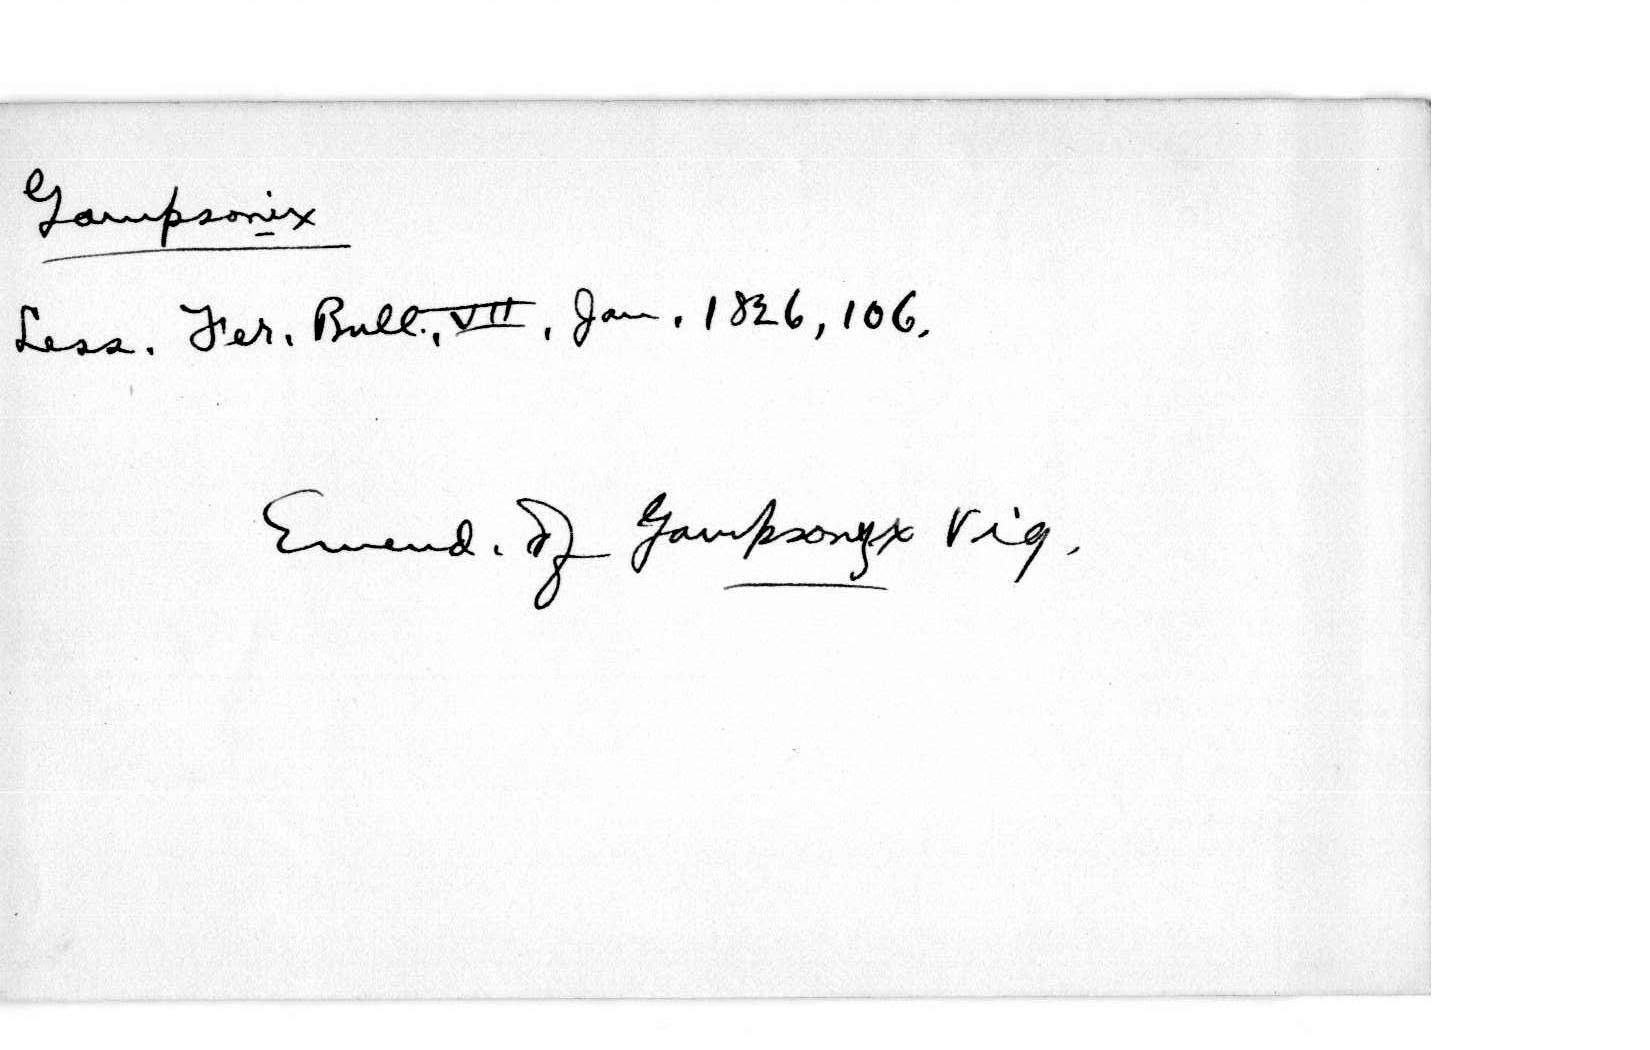 Gampsonix
Less. Fer. Bull., VII, Jan. 1826, 106.
Emend. of Gampsonyx Vig.